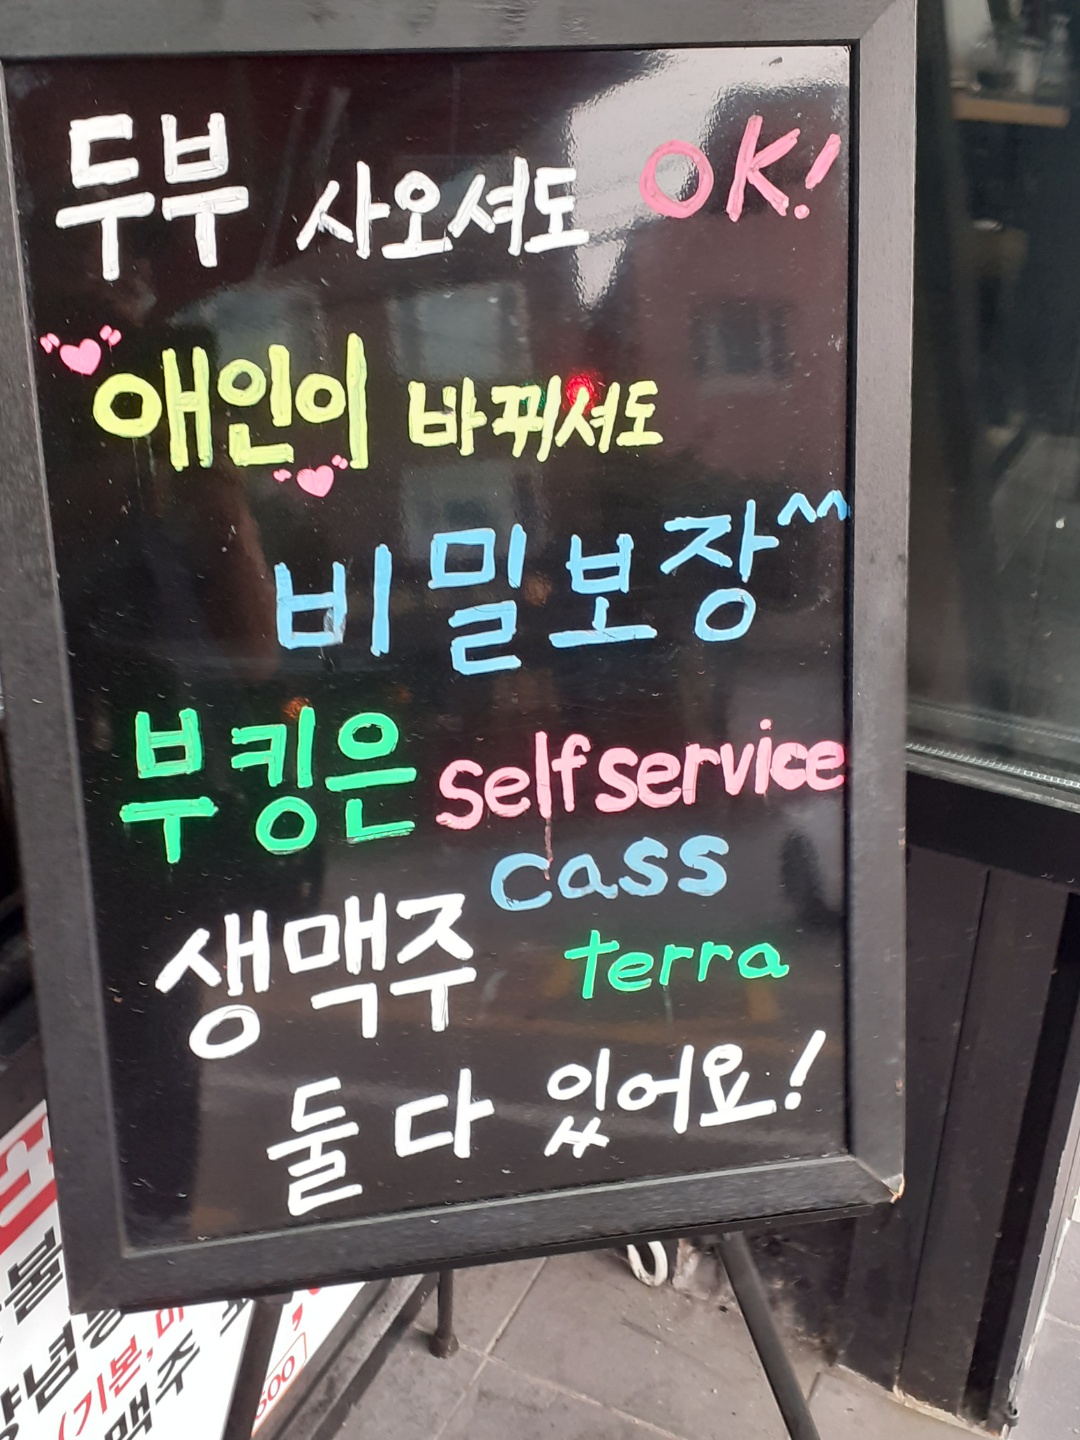 두부 사오셔도 OK!
애인이 바뀌셔도
비밀보장^^
부킹은 self service
생맥주 cass
terra
둘 다 있어요!
(기본,
맥주